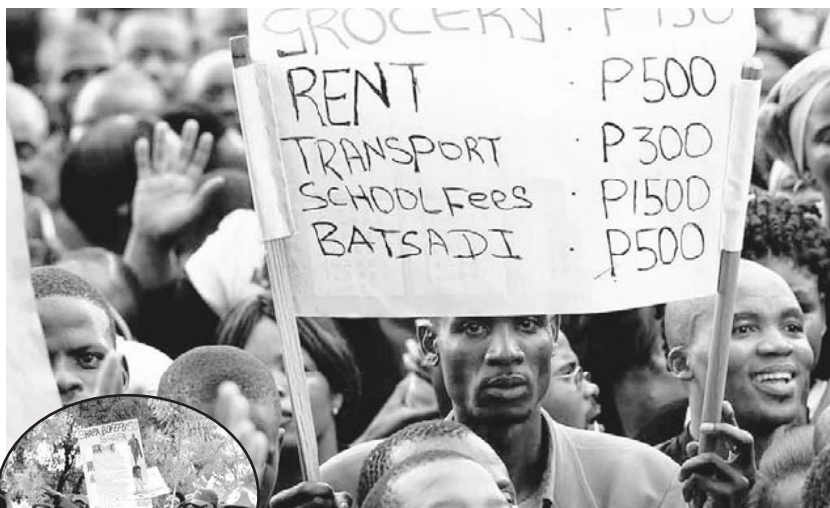 GROCERY . P150
RENT . P500
TRANSPORT . P300
SCHOOLFees . P1500
BATSADI . P500
SHAPA